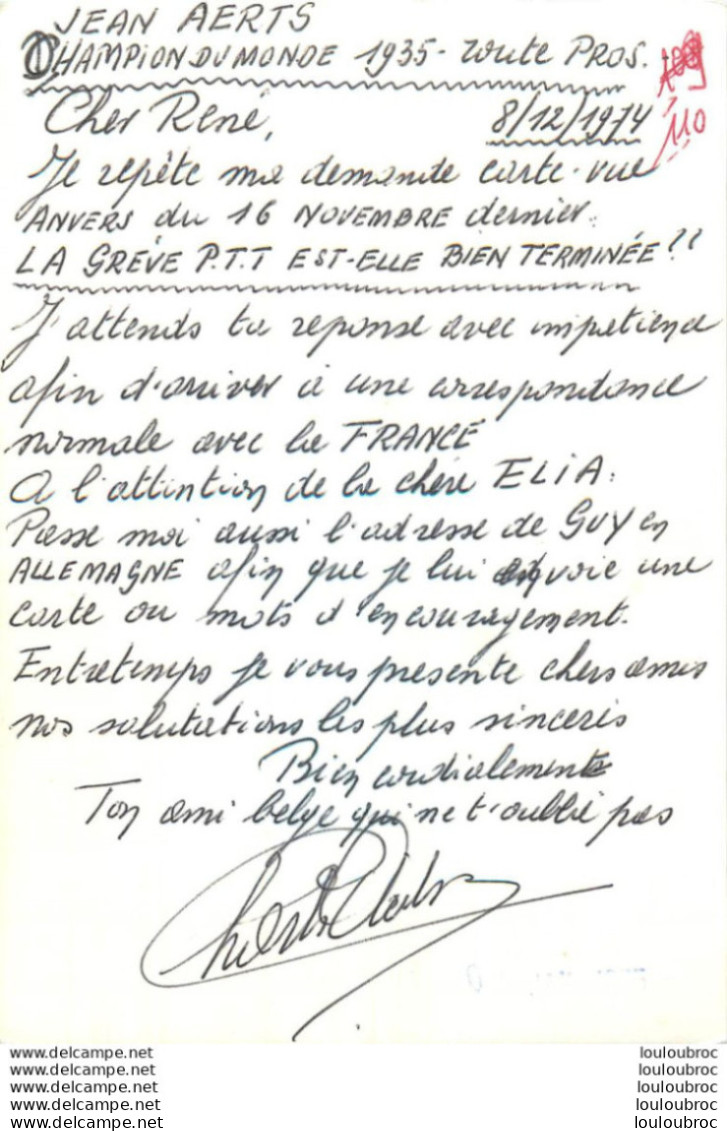 JEAN AERTS
CHAMPION DU MONDE 1935 - route PROS.
110
Cher René,
8/12/1974
Je repète ma demande carte-vue
ANVERS du 16 NOVEMBRE dernier.
LA GRÈVE P.T.T EST-ELLE BIEN TERMINÉE??
J'attends ta reponse avec impatience
afin d'arriver à une correspondance
normale avec la FRANCE
A l'attention de la chère ELIA:
Passe moi aussi l'adresse de GUY en
ALLEMAGNE afin que je lui envoie une
carte ou mots d'encouragement.
Entretemps je vous presente chers amis
nos salutations les plus sinceres
Bien cordialement
Ton ami belge qui ne t'oublie pas
www.delcampe.net
www.delcampe.net
www.delcampe.net
www.delcampe.net
www.delcampe.net
louloubroc
louloubroc
louloubroc
louloubroc
louloubroc